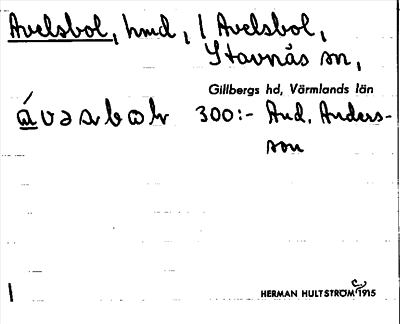 Avelsbol, hmd, 1 Avelsbol,
Stavnäs sn,
Gillbergs hd, Värmlands län
300:- And. Anders-
son
HERMAN HULTSTRÖM 1915